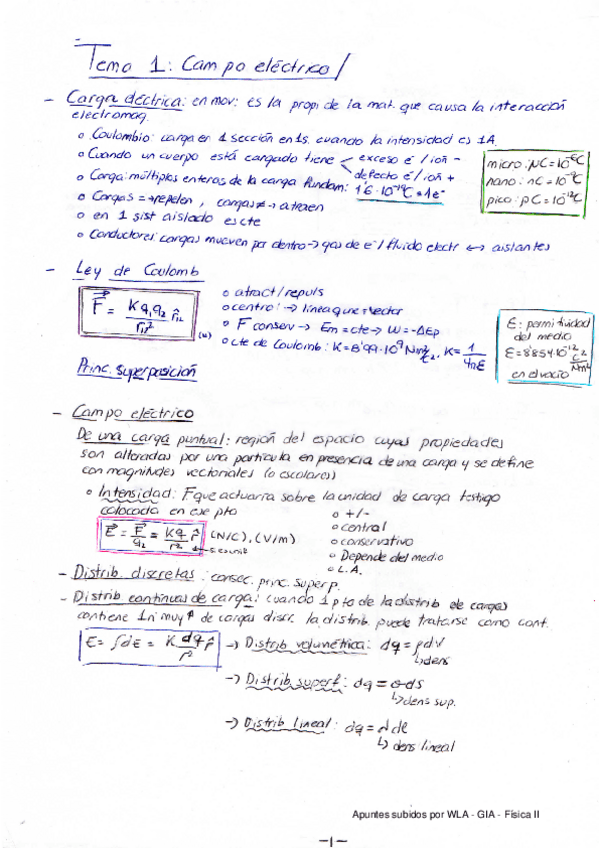 Tema 1: Campo eléctrico
- Carga eléctrica: en mov: es la prop. de la mat. que causa la interacción
electromag.
o Coulombio: carga en 1 sección en 1s. cuando la intensidad es 1A.
o Cuando un cuerpo está cargado tiene exceso e⁻/ión -
defecto e⁻/ión +
o Carga: múltiplos enteros de la carga fundam: 1'6·10⁻¹⁹C = 1e⁻
o Cargas = → repelen, cargas ≠ → atraen
o en 1 sist aislado es cte
o Conductores: cargas mueven por dentro → gas de e⁻/fluido electr ↔ aislantes
micro: μC = 10⁻⁶C
nano: nC = 10⁻⁹C
pico: pC = 10⁻¹²C
- Ley de Coulomb
F = K q₁q₂ / r₁₂² r̂₁₂
(N)
o atract/repuls
o central: → línea que
o F conserv → Em = cte → W = -ΔEp
o cte de Coulomb: K = 8'99·10⁹ Nm²/C², K = 1/4πε
ε: permitividad
del medio
ε = 8'854·10⁻¹² C²/Nm²
en el vacío
Princ. superposición
- Campo eléctrico
De una carga puntual: región del espacio cuyas propiedades
son alteradas por una partícula en presencia de una carga y se define
con magnitudes vectoriales (o escalares)
o Intensidad: F que actuaría sobre la unidad de carga testigo
colocada en ese pto
E = F/q₂ = Kq/r² r̂ (N/C), (V/m)
o +/-
o central
o conservativo
o Depende del medio
o L.A.
- Distrib. discretas: consec. princ. superp.
- Distrib continuas de carga: cuando 1 pto de la distrib de cargas
contiene 1 nº muy ↑ de cargas discr. la distrib. puede tratarse como cont.
E = ∫dE = K dq/r² r̂
→ Distrib volumétrica: dq = ρdV
↳ dens
→ Distrib superf: dq = σds
↳ dens sup.
→ Distrib lineal: dq = λdl
↳ dens lineal
Apuntes subidos por WLA - GIA - Física II
-1-